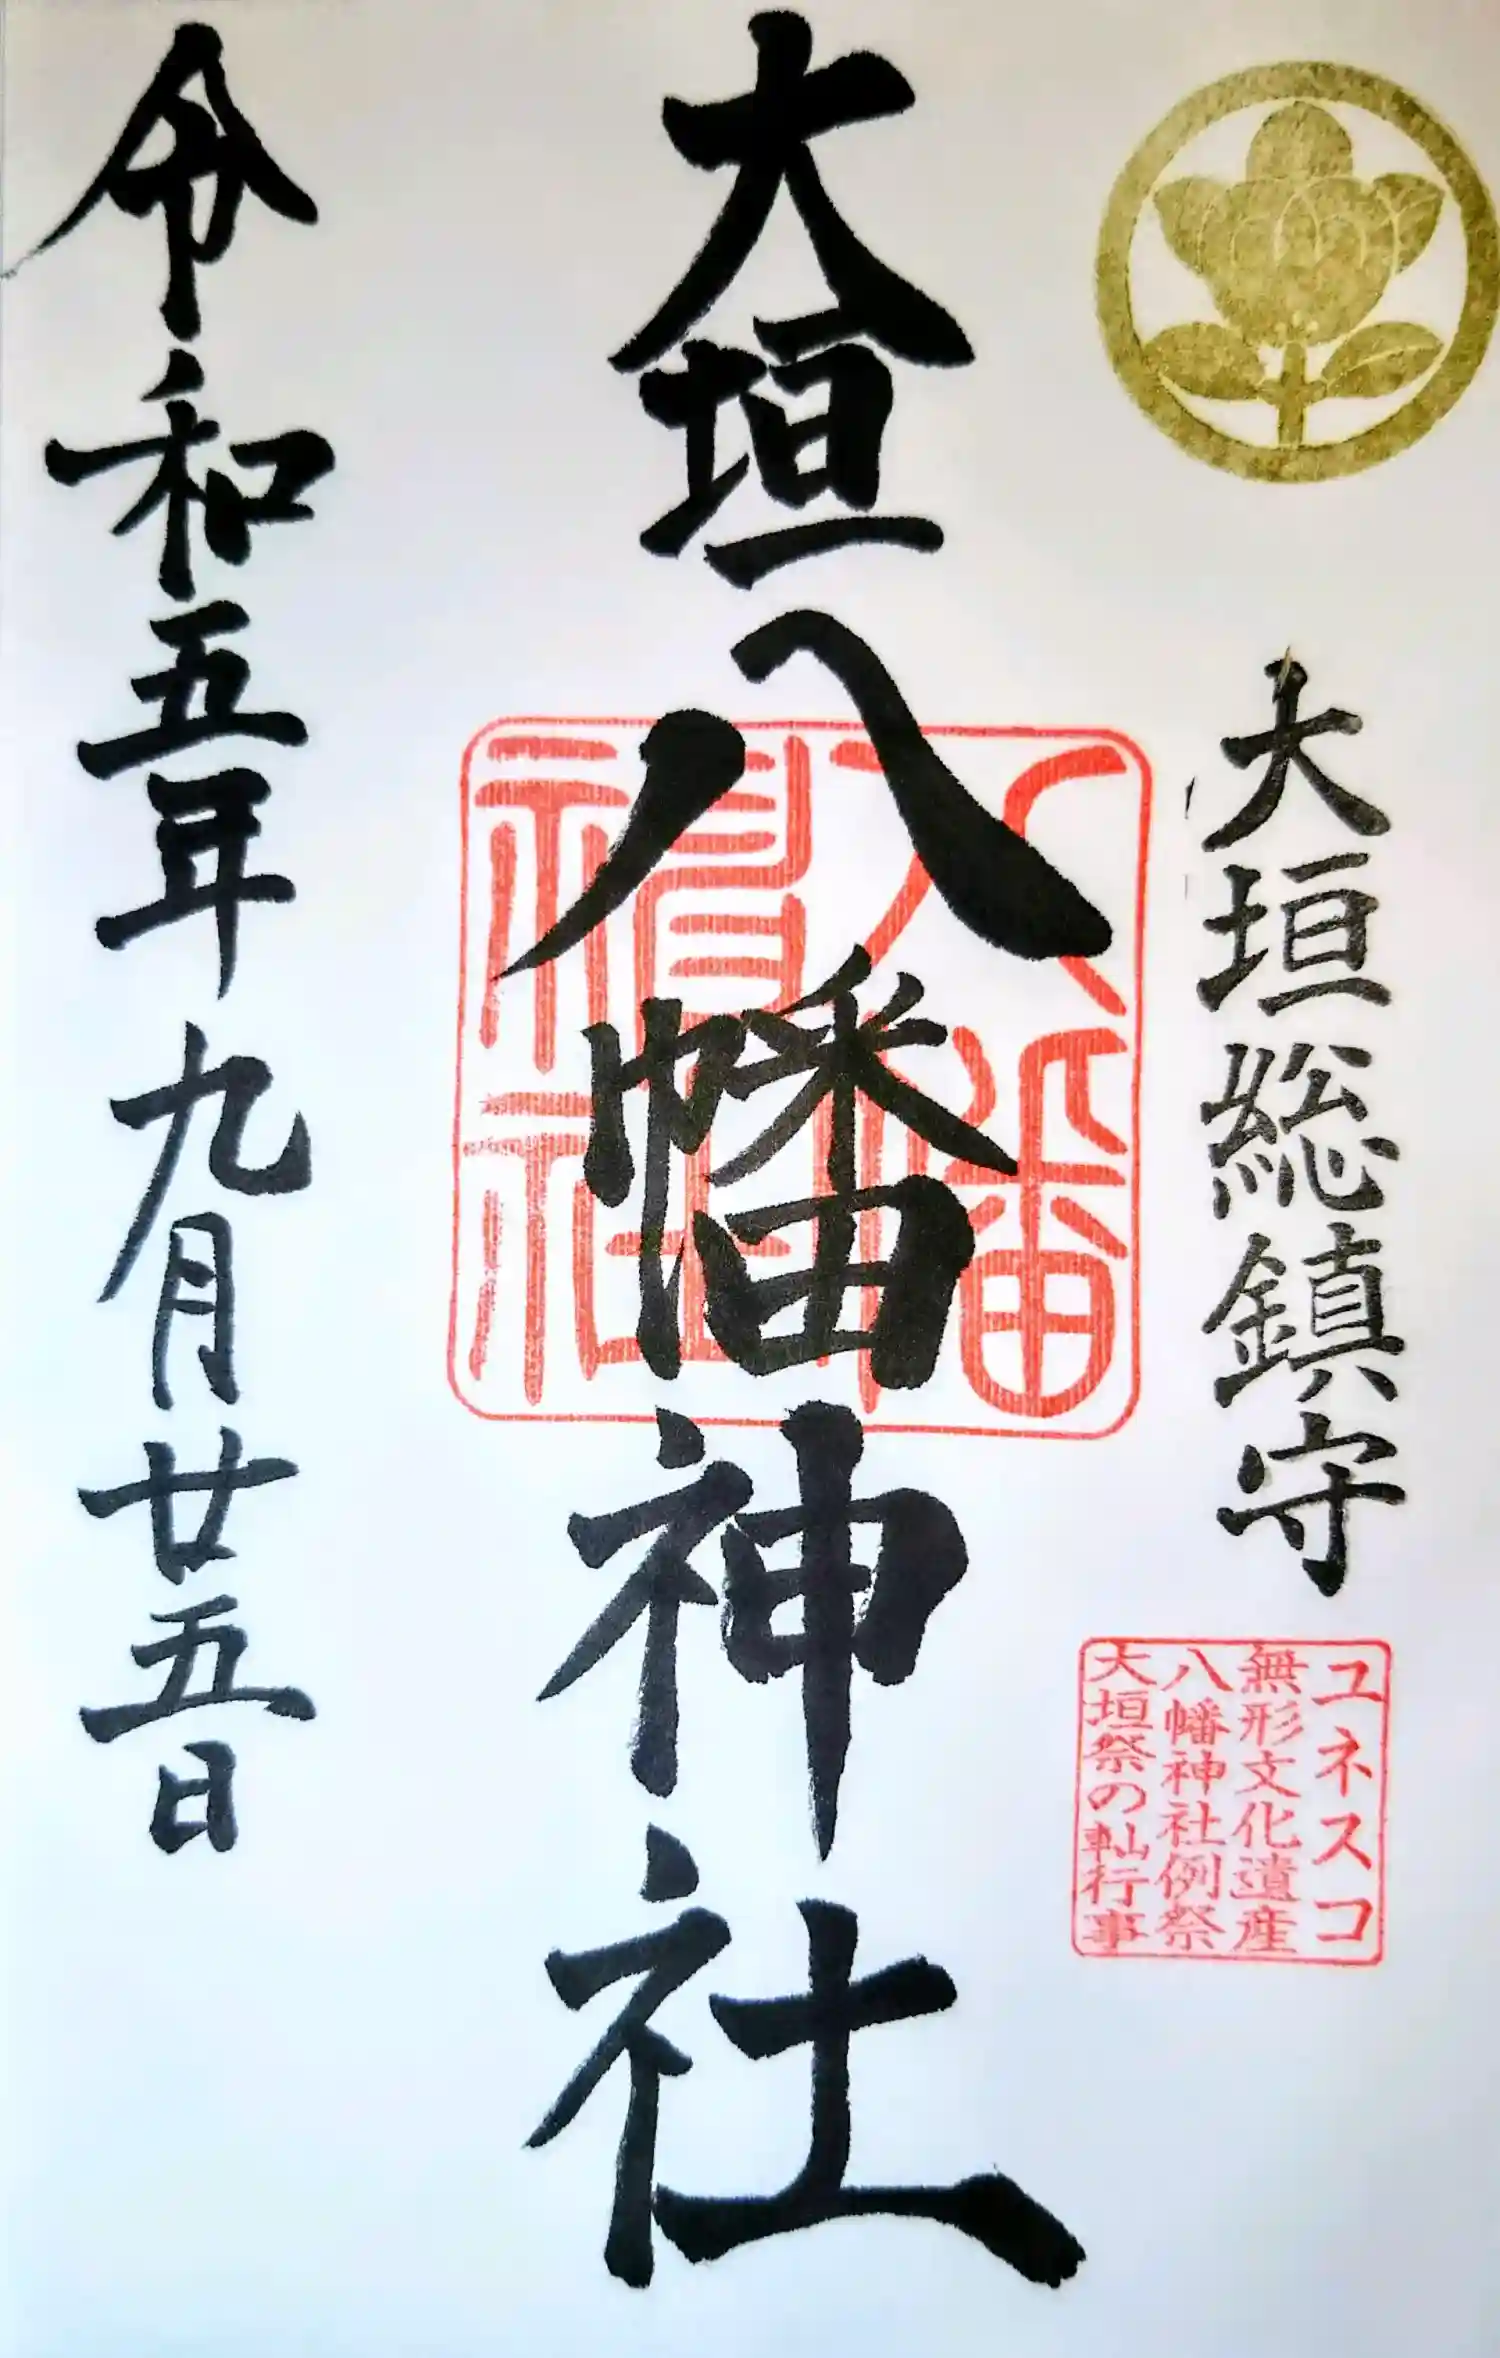 大垣総鎮守
ユネスコ
無形文化遺産
八幡神社例祭
大垣祭の䡄行事
大垣八幡神社
八幡
神社
令和五年九月廿五日